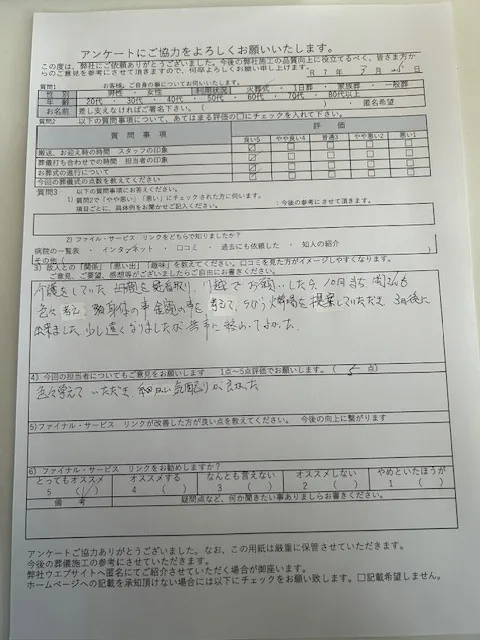 アンケートにご協力をよろしくお願いいたします。
この度は、弊社にご依頼ありがとうございました。今後の弊社施工の品質向上に役立てるべく、皆さま方か
らのご意見を参考にさせて頂きますので、何卒よろしくお願い申し上げます。
R 7 年 月 日
質問1 お客様。ご自身の事についてお伺いいたします。
性別 男性 ・ 女性 利用状況 火葬式 ・ 1日葬 ・ 家族葬 ・ 一般葬
年齢 20代 ・ 30代 ・ 40代 ・ 50代 ・ 60代 ・ 70代 ・ 80代以上
お名前 差し支えなければご署名下さい。( )・匿名希望
質問2 以下の質問事項について、あてはまる評価の□にチェックを入れて下さい。
質問事項 評価
良い5 やや良い4 普通3 やや悪い2 悪い1
搬送、お迎え時の時間 スタッフの印象 ☑ □ □ □ □
葬儀打ち合わせでの時間 担当者の印象 ☑ □ □ □ □
お葬式の進行について ☑ □ □ □ □
今回の葬儀式の点数を教えてください ☑ □ □ □ □
質問3 以下の質問事項にお答えください。
1) 質問2で「やや悪い」「悪い」にチェックされた方に伺います。 :今後の参考にさせて頂きます。
項目ごとに、具体例をお聞かせご記入ください。
2) ファイル・サービス リンクをどちらで知りましたか?
病院の一覧表 ・ インターネット ・ 口コミ ・ 過去にも依頼した ・ 知人の紹介
その他( )
3) 故人との「関係」「思い出」「趣味」を教えてください。口コミを見た方がイメージしやすくなります。
ご意見、ご要望、感想等がございましたらご自由にお書きください。
介護をしていた 母親を 看取り、
色々 金額の事を 9から火葬場を提案していただき 3日後に
出来ました。少し遅くなりましたが 無事に 終わってよかった。
4) 今回の担当者についてもご意見をお願いします 1点~5点評価でお願いします。( 5 点)
色々 いただき、 良かった
5)ファイナル・サービス リンクが改善した方が良い点を教えてください。 今後の向上に繋がります
6) ファイナル・サービス リンクをお勧めしますか?
とってもオススメ オススメする なんとも言えない オススメしない やめといたほうが
5 ( ) 4 ( ) 3 ( ) 2 ( ) 1 ( )
備考 疑問点など、何か聞きたい事ありましらお書きください。
アンケートご協力ありがとうございました。なお、この用紙は厳重に保管させていただきます。
今後の葬儀施工の参考にさせていただきます。
弊社ウエブサイトへ匿名にてご紹介させていただく場合が御座います。
ホームページへの記載を承知頂けない場合には以下にチェックをお願い致します。□記載希望しません。